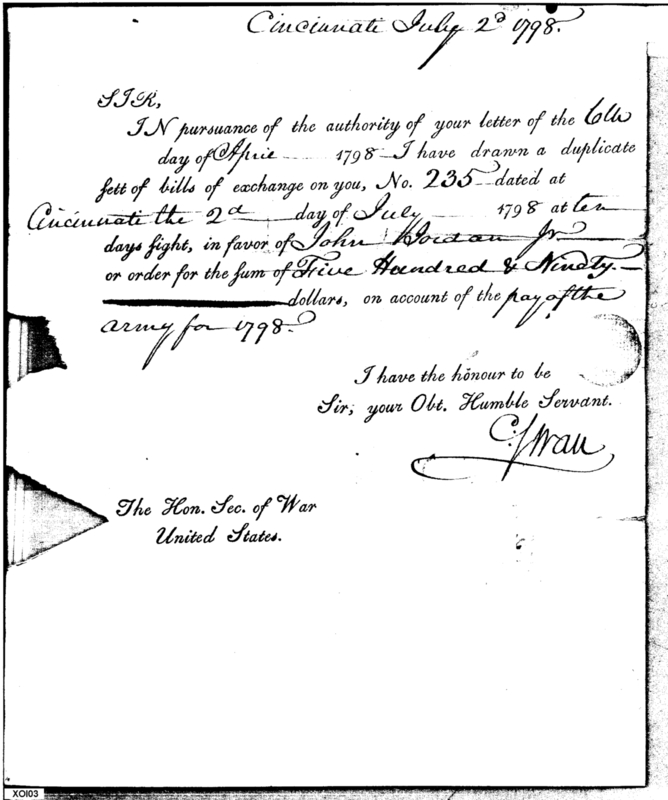 Cincinnati July 2d 1798.
SIR,
IN pursuance of the authority of your letter of the 6th
day of April 1798 I have drawn a duplicate
sett of bills of exchange on you, No. 235 dated at
Cincinnati the 2d day of July 1798 at ten
days sight, in favor of John Jordan Jr
or order for the sum of Five Hundred & Ninety
dollars, on account of the pay of the
army for 1798.
I have the honour to be
Sir, your Obt. Humble Servant.
C. Swan
The Hon. Sec. of War
United States.
XOI03